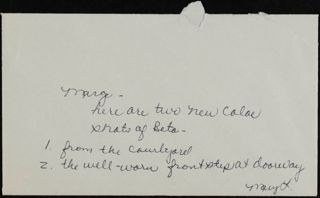 Marge -
here are two new color
shots of Beta -
1. from the courtyard
2. the well-worn front step at doorway
Mary L.